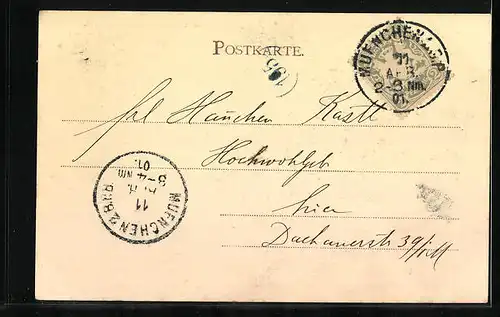 POSTKARTE.
MUENCHEN 2. B.P.
11
APR
2-3 Nm.
01.
195
Frl Hannchen Kastl
Hochwohlgeb
hier
Dachauerstr 39/III
MUENCHEN 2 B.P.
11
3-4 Nm.
01.